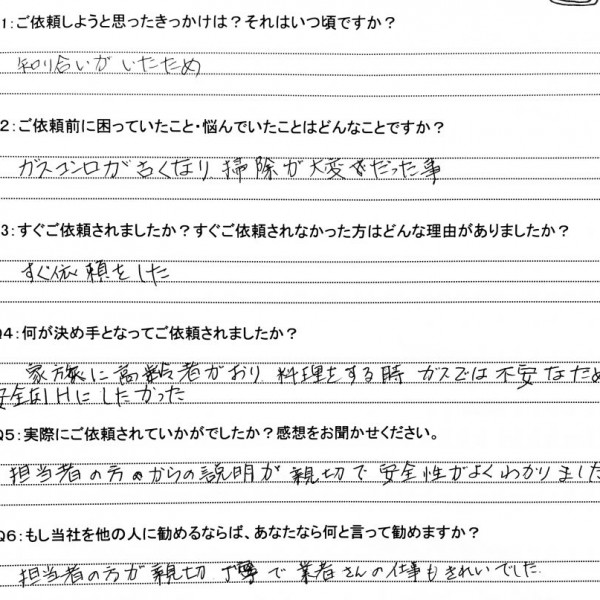 1：ご依頼しようと思ったきっかけは？それはいつ頃ですか？
知り合いがいたため
2：ご依頼前に困っていたこと・悩んでいたことはどんなことですか？
ガスコンロが古くなり掃除が大変だった事
3：すぐご依頼されましたか？すぐご依頼されなかった方はどんな理由がありましたか？
すぐ依頼をした
Q4：何が決め手となってご依頼されましたか？
家族に高齢者がおり 料理をする時 ガスでは不安なため
安全なIHにしたかった
Q5：実際にご依頼されていかがでしたか？感想をお聞かせください。
担当者の方からの説明が親切で安全性がよくわかりました
Q6：もし当社を他の人に勧めるならば、あなたなら何と言って勧めますか？
担当者の方が親切丁寧で業者さんの仕事もきれいでした.